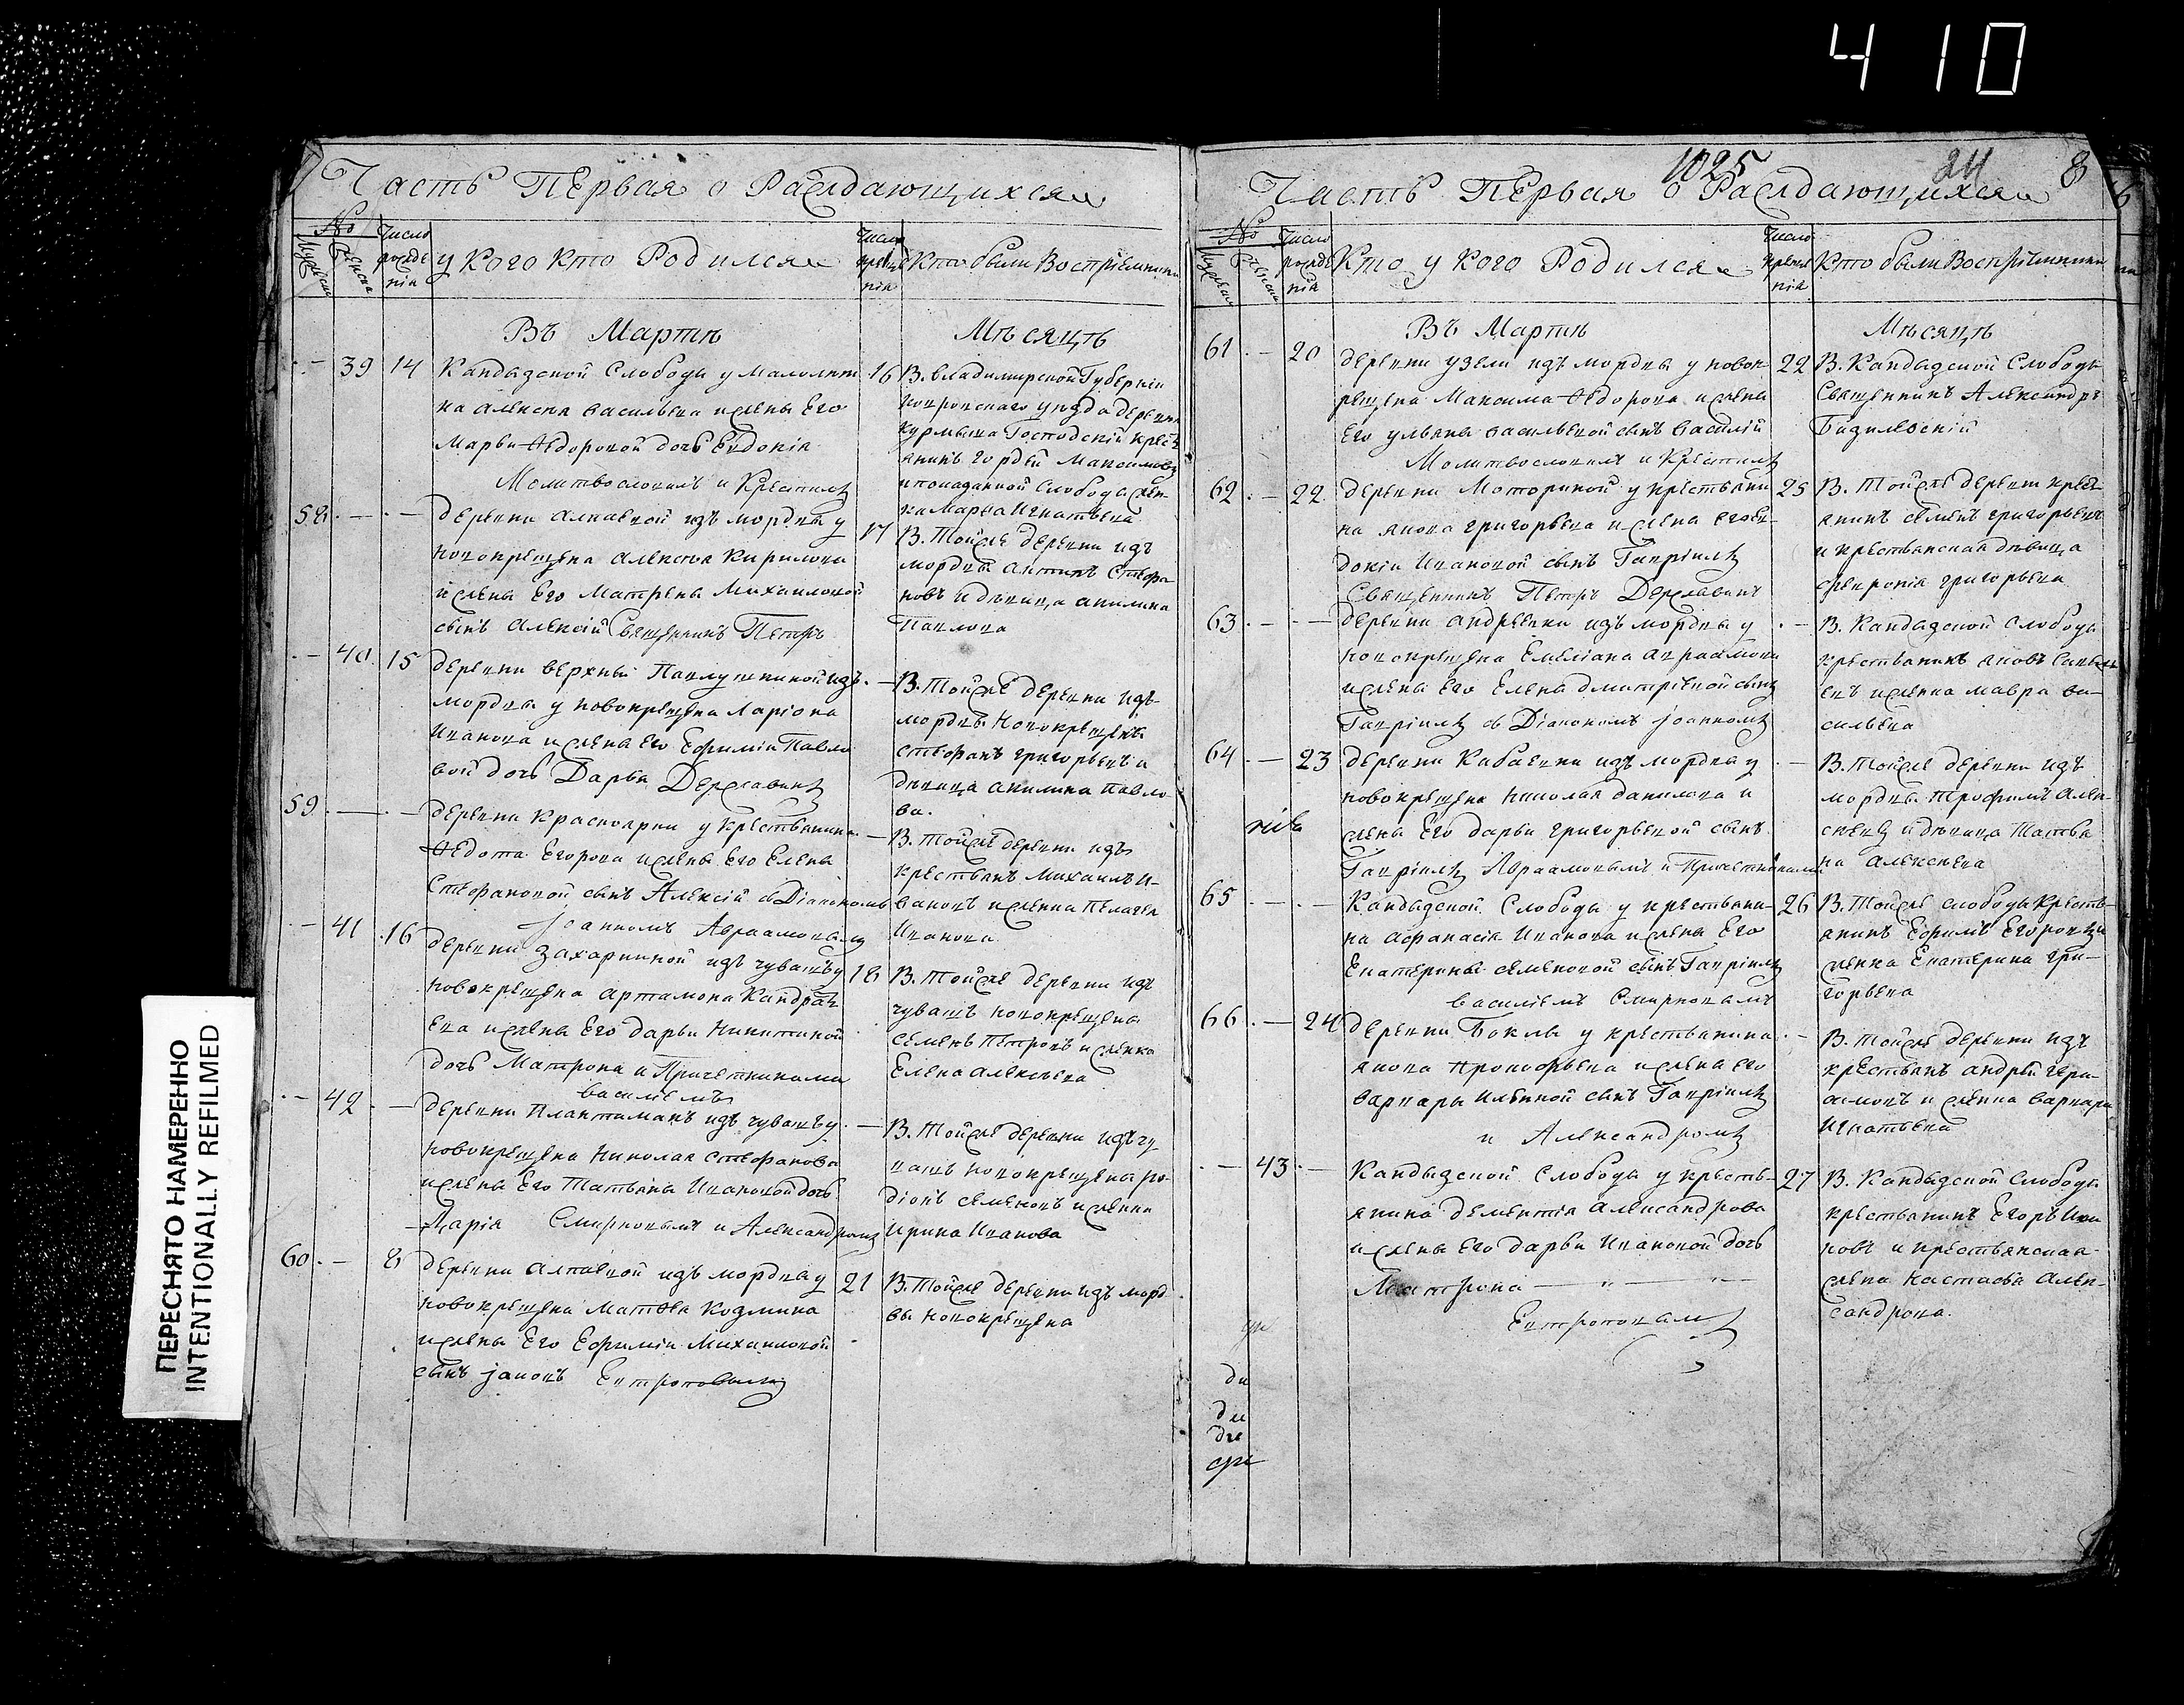 4 10
Часть Первая о Раждающихся
№
Мужеска
Женска
Число рожде нiя
у кого кто Родился
Число креще нiя
Кто были Воспрiемники
Въ Мартѣ
Мѣсяцѣ
39 14 Кандызской Слободы у малолет
на алексея васильева и жены Его
Марьи Ѳедоровой дочь Евдокiя
Молитвословилъ и Крестилъ
16 В. владимирской Губернiи
покровскаго уезда деревни
Господскiй крест
янинъ гордѣй Максимовъ
и кандызской Слободы жен
ка Марѳа Игнатьева
58 деревни Алпаевой изъ мордвы у
новокрещена алексея Кирилова
и жены Его Матрены Михаиловой
сынъ Алексiй Священникъ Петръ
17 В. Тойже деревни изъ
мордвы антипъ Стефа
новъ и девица акилина
Павлова
40 15 деревни верхный Павлушкиной изъ
мордвы у новокрещена Ларiона
Иванова и жены Его Ефимiи Павло
вой дочь Дарья Державинъ
В. Тойже деревни изъ
мордвы Новокрещенъ
стефанъ григорьевъ и
девица акилина павло
ва.
59 деревни Красноярки у крестьянина
Ѳедота Егорова и жены Его Елены
Стефановой сынъ Алексiй съ Дiакономъ
Iоанномъ Авраамовымъ
В. тойже деревни изъ
крестьянъ Михаилъ И-
вановъ и женка Пелагея
Иванова
41 16 деревни Захаркиной изъ чувашъ у
новокрещена артамона Кандрать
ева и жены Его дарьи Никитиной
дочь Матрона и Причетниками
василiемъ
18 В. Тойже деревни изъ
чувашъ новокрещены
семенъ Петровъ и женка
Елена алексеева
42 деревни Плантаманъ изъ чувашъ у
новокрещена Николая стефанова
и жены Его Татьяны Ивановой дочь
Дарiя Смирновымъ и Александромъ
В. Тойже деревни изъ чу
вашъ новокрещены ро-
дiонъ семеновъ и женка
Ирина Иванова
60 8 деревни алпаевой изъ мордвы у
новокрещена матвея козмина
и жены Его Ефимiи Михаиловой
сынъ iаковъ Евтроповымъ
21 В. Тойже деревни изъ морд
вы новокрещена
1025 24 8
Часть Первая о Раждающихся
№
Мужеска
Женска
Число рожде нiя
Кто у кого Родился
Число креще нiя
Кто были Воспрiемники
Въ Мартѣ
Мѣсяцѣ
61 20 деревни узели изъ мордвы у новок
рещена Максима Ѳедорова и жены
Его ульяны васильевой сынъ василiй
Молитвословилъ и Крестилъ
22 В. Кандызской Слободы
Священникъ Александръ
62 22 деревни Моториной у крестьяни
на якова григорьева и жены его ев
докiи Ивановой сынъ Гаврiилъ
Священникъ Петръ Державинъ
25 В. Тойже деревни крест
янинъ семенъ григорьевъ
и крестьянская девица
февронiя григорьева
63 деревни андреевки изъ мордвы у
новокрещена Емелiана авраамова
и жены Его Елены дмитрiевой сынъ
Гаврiилъ съ Дiакономъ Iоанномъ
В. Кандызской Слободы
крестьянинъ яковъ савель
евъ и женка мавра ва-
сильева
64 23 деревни Кабаевки изъ мордвы у
новокрещена Николая данилова и
жены Его дарьи григорьевой сынъ
Гаврiилъ Авраамовымъ и Причетниками
В. Тойже деревни изъ
мордвы трофимъ алек-
сеевъ и девица Татья
на алексеева
65 Кандызской Слободы у крестьяни-
на афанасiя Иванова и жены Его
Екатерины семеновой сынъ Гаврiилъ
василiемъ Смирновымъ
26 В. Тойже слободы кресть-
янинъ Ефимъ Егоровъ и
женка Екатерина гри-
горьева
66 24 деревни Боклы у крестьянина
якова прокофьева и жены его
варвары Ильиной сынъ Гаврiилъ
и Александромъ
В. тойже деревни изъ
крестьянъ андрей гера-
симовъ и женка варвара
Игнатьева
43 Кандызской Слободы у кресть-
янина дементiя александрова
и жены Его дарьи Ивановой дочь
Матрона
Евтроповымъ
27 В. Кандызской Слободы
крестьянинъ Егоръ Ива
новъ и крестьянская
жена настасья алек-
сандрова.
ПЕРЕСНЯТО НАМЕРЕННО
INTENTIONALLY REFILMED